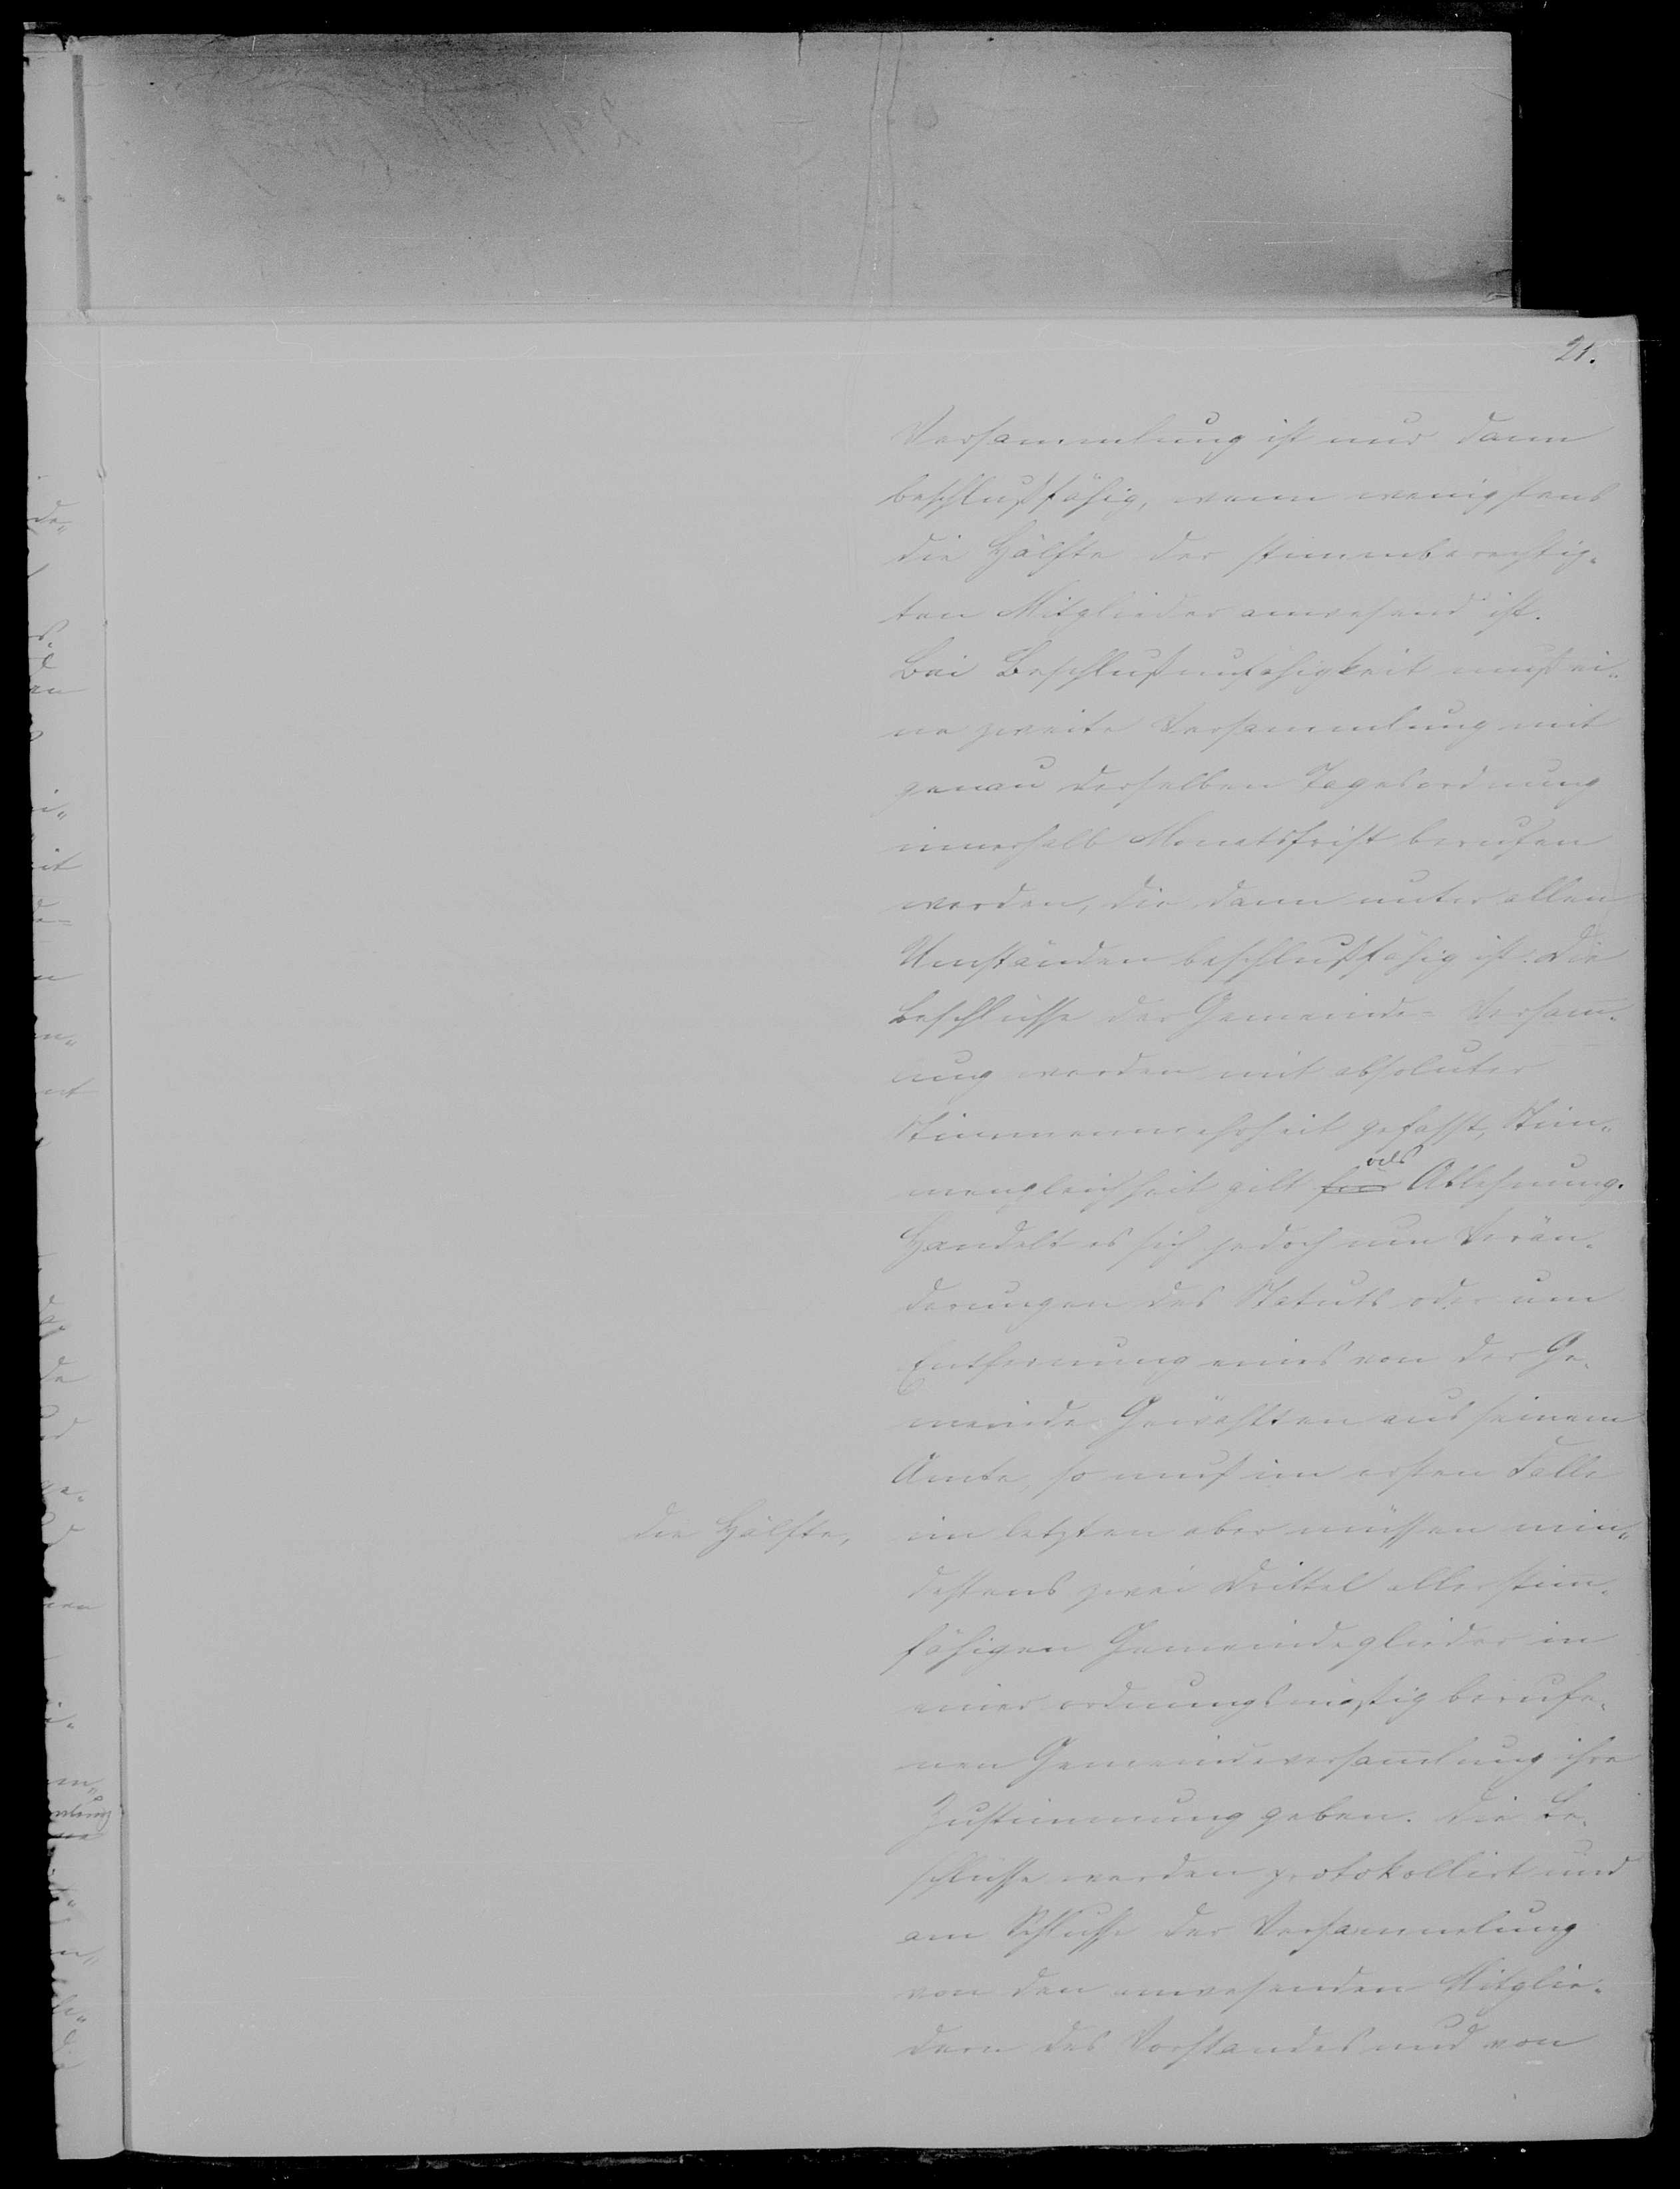 21.
Versammlung ist nur dann
beschlußfähig, wenn wenigstens
die Hälfte der stimmberechtig„
ten Mitglieder anwesend ist.
Bei Beschlußunfähigkeit muß ei„
ne zweite Versammlung mit
genau derselben Tagesordnung
innerhalb Monatsfrist berufen
werden, die dann unter allen
Umständen beschlußfähig ist. Die
Beschlüsse der Gemeinde- Versam̅„
ung werden mit absoluter
Stimmenmehrheit gefasst, Stim„
als
mengleichheit gilt für Ablehnung.
Handelt es sich jedoch um Verän„
derungen des Statuts oder um
Entfernung eines von der Ge„
meinde Gewählten aus seinem
Amte, so muß im ersten Falle
die Hälfte,
im letzten aber müssen min„
destens zwei Drittel aller stim̅„
fähigen Gemeindeglieder in
einer ordnungsmäßig berufe„
nen Gemeindeversam̅lung ihre
Zustimmung geben. Die Be„
schlüsse werden protokollirt und
am Schlusse der Versammlung
von den anwesenden Mitglie„
dern des Vorstandes und von